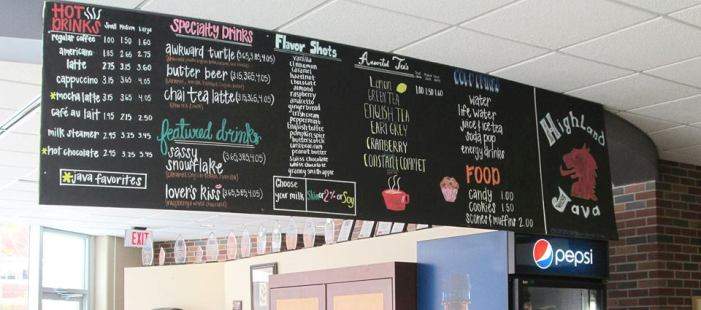 HOT DRINKS
Small Medium Large
regular coffee 1.00 1.50 1.60
americano 1.85 2.65 2.75
latte 2.75 3.15 3.60
cappuccino 3.15 3.65 4.05
*mocha latte 3.15 3.65 4.05
café au lait 1.95 2.15 2.50
milk steamer 2.95 3.25 3.95
*hot chocolate 2.95 3.25 3.95
*java favorites*
Specialty Drinks
awkward turtle (3.65, 3.85, 4.05)
butter beer (3.15, 3.65, 4.05)
chai tea latte (3.15, 3.65, 4.05)
featured drinks
sassy snowflake (3.65, 3.85, 4.05)
lover's kiss (3.65, 3.85, 4.05)
Flavor Shots
vanilla
cinnamon
caramel
hazelnut
chocolate
almond
raspberry
amaretto
gingerbread
irish cream
peppermint
english toffee
pumpkin spice
butterscotch
coconut
peanut butter
swiss chocolate
white chocolate
granny smith apple
Choose your milk Skim or 2% or Soy
Assorted Teas
Lemon
GREEN TEA
ENGLISH TEA
EARL GREY
CRANBERRY
CONSTANT COMMET
1.00 1.50 1.60
COLD DRINKS
water
life water
juice | ice tea
soda pop
energy drinks
FOOD
candy 1.00
cookies 1.50
scones & muffins 2.00
Highland
Java
EXIT
pepsi